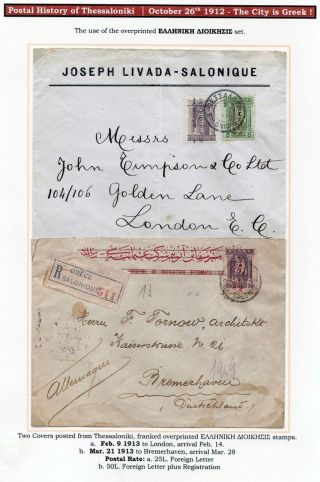 Postal History of Thessaloniki | October 26th 1912 - The City is Greek !
The use of the overprinted ΕΛΛΗΝΙΚΗ ΔΙΟΙΚΗΣΙΣ set.
JOSEPH LIVADA-SALONIQUE
Messrs
John Timpson & Co Ltd
104/106 Golden Lane
London E. C.
R
GRÈCE
SALONIQUE
511
19
Herrn F. Tornow, Architekt
Kaiserstrasse N. 21
Bremerhaven
(Deutschland)
Allemagne
Two Covers posted from Thessaloniki, franked overprinted ΕΛΛΗΝΙΚΗ ΔΙΟΙΚΗΣΙΣ stamps.
a. Feb. 9 1913 to London, arrival Feb. 14.
b. Mar. 21 1913 to Bremerhaven, arrival Mar. 28
Postal Rate: a. 25L. Foreign Letter
b. 50L. Foreign Letter plus Registration